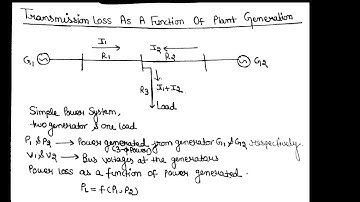 Transmission Loss As A Function Of Plant Generation
I1 I2
G1 R1 R2 G2
R3 I1+I2
Load
Simple Power System,
two generator & one load
P1 & P2 → Power generated from generator G1 & G2 respectively.
(3-Power)
V1 & V2 → Bus voltages at the generators
Power loss as a function of power generated.
PL = f(P1, P2)